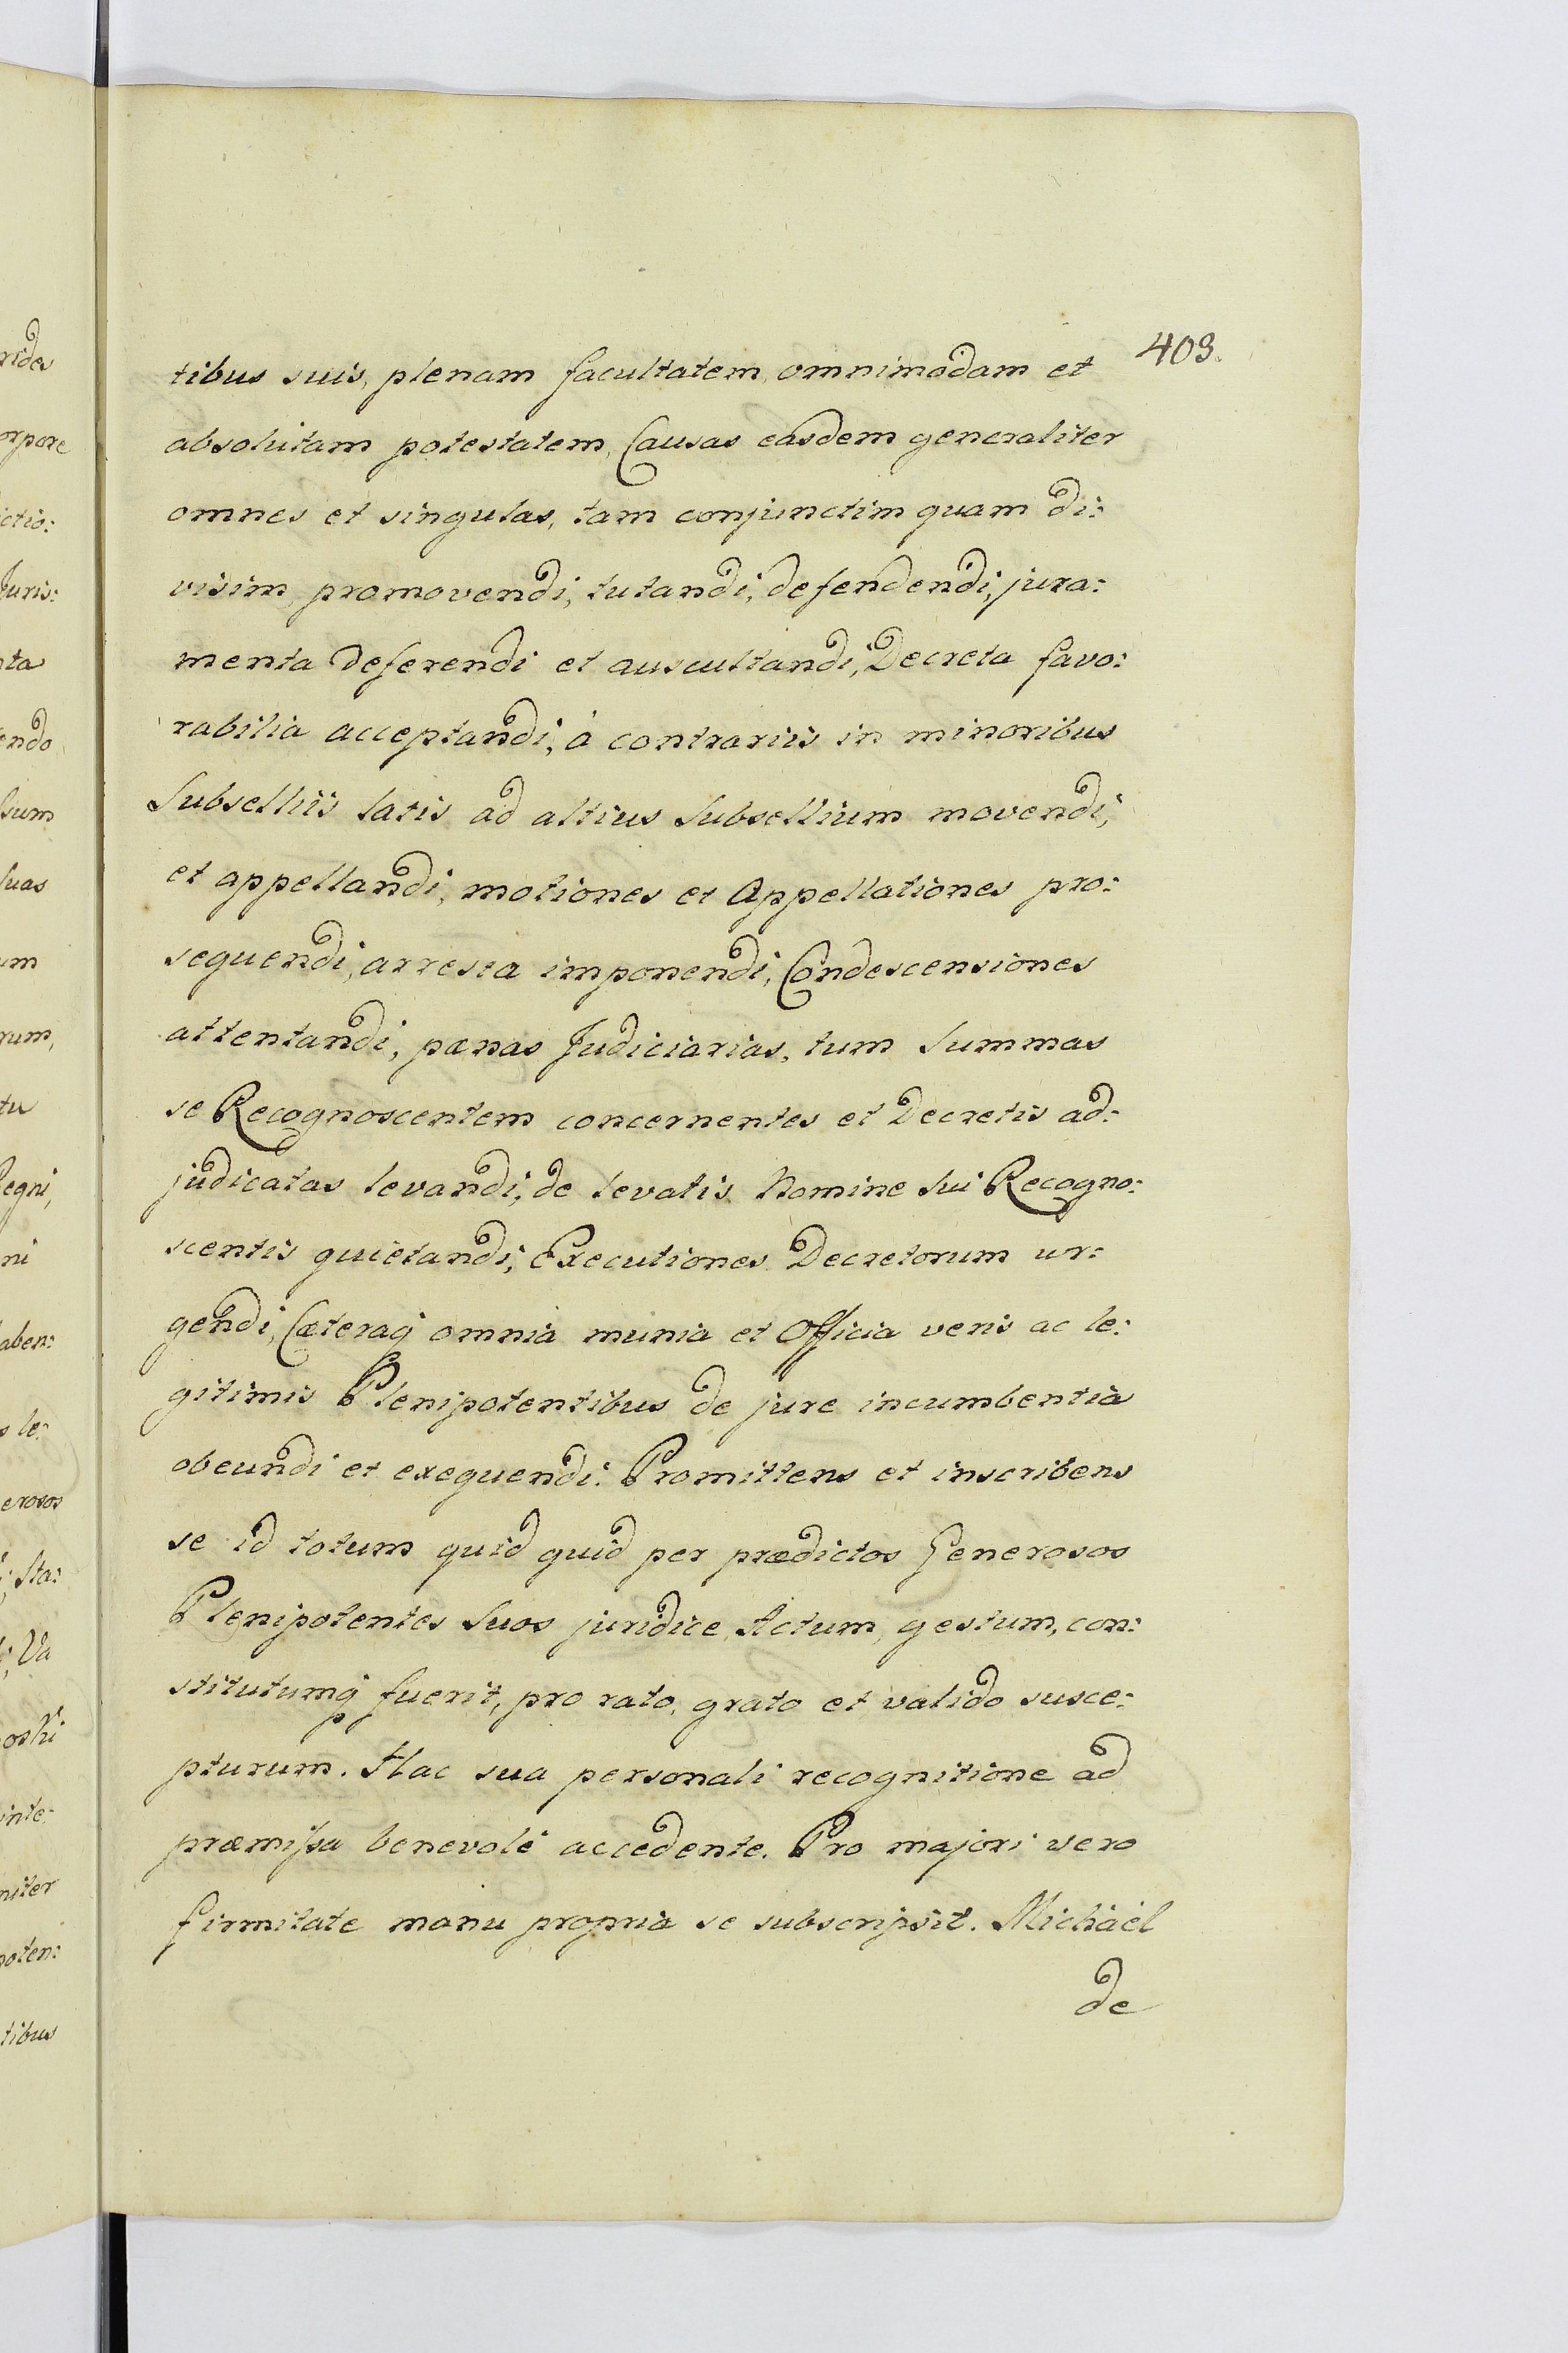 403.
tibus suis, plenam facultatem, omnimodam et
absolutam potestatem, Causas easdem generaliter
omnes et singulas, tam conjunctim quam di:
visim, promovendi, tutandi, defendendi, jura:
menta deferendi et auscultandi, Decreta favo:
rabilia acceptandi, à contrariis in minoribus
Subselliis latis ad altius Subsellium movendi,
et appellandi, motiones et Appellationes pro:
sequendi, arresta imponendi, Condescensiones
attentandi, pænas Judiciarias, tum Summas
se Recognoscentem concernentes et Decretis ad:
judicatas levandi, de levatis Nomine sui Recogno:
scentis quietandi, Executiones Decretorum ur:
gendi, Cæteraq omnia munia et Officia veris ac le:
gitimis Plenipotentibus de jure incumbentia
obeundi et exequendi. Promittens et inscribens
se id totum quid quid per prædictos Generosos
Plenipotentes Suos juridice Actum, gestum, con:
stitutumq fuerit, pro rato, grato et valido susce:
pturum. Hac sua personali recognitione ad
præmissa benevolè accedente. Pro majori vero
firmitate manu propria se subscripsit. Michaël
de
rides
orpore
ctio:
Juris:
nta
endo
sum
suas
um
rum,
tu
Regni,
ni
aben:
s le:
erosos
Sta:
Va
oski
inte:
niter
poten:
tibus